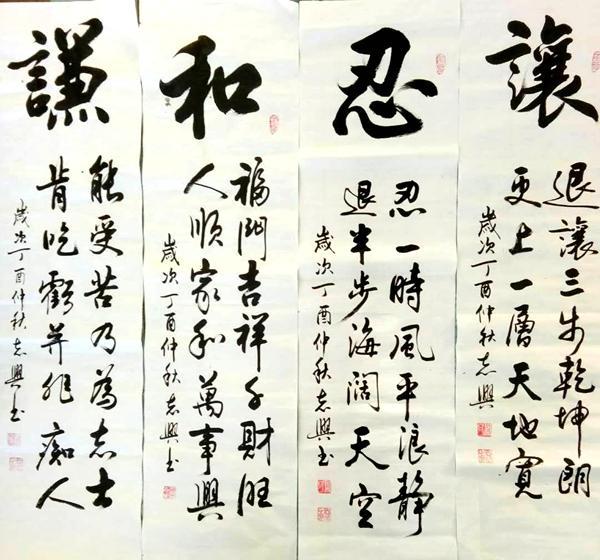 讓
退讓三步乾坤朗
更上一層天地寬
歲次丁酉仲秋志興
忍
忍一時風平浪靜
退半步海闊天空
歲次丁酉仲秋志興书
和
福門吉祥千財旺
人順家和萬事興
歲次丁酉仲秋志興书
謙
能受苦乃為志士
肯吃虧并非痴人
歲次丁酉仲秋志興书